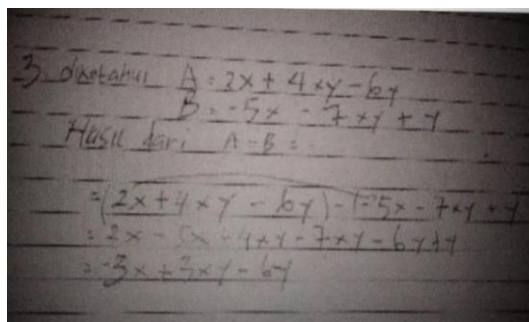 3. diketahui A = 2x + 4xy - 6y
B = -5x - 7xy + y
Hasil dari A - B = ..
= (2x + 4xy - 6y) - (-5x - 7xy + y
= 2x - 5x + 4xy - 7xy - 6y + y
= -3x + 3xy - 6y